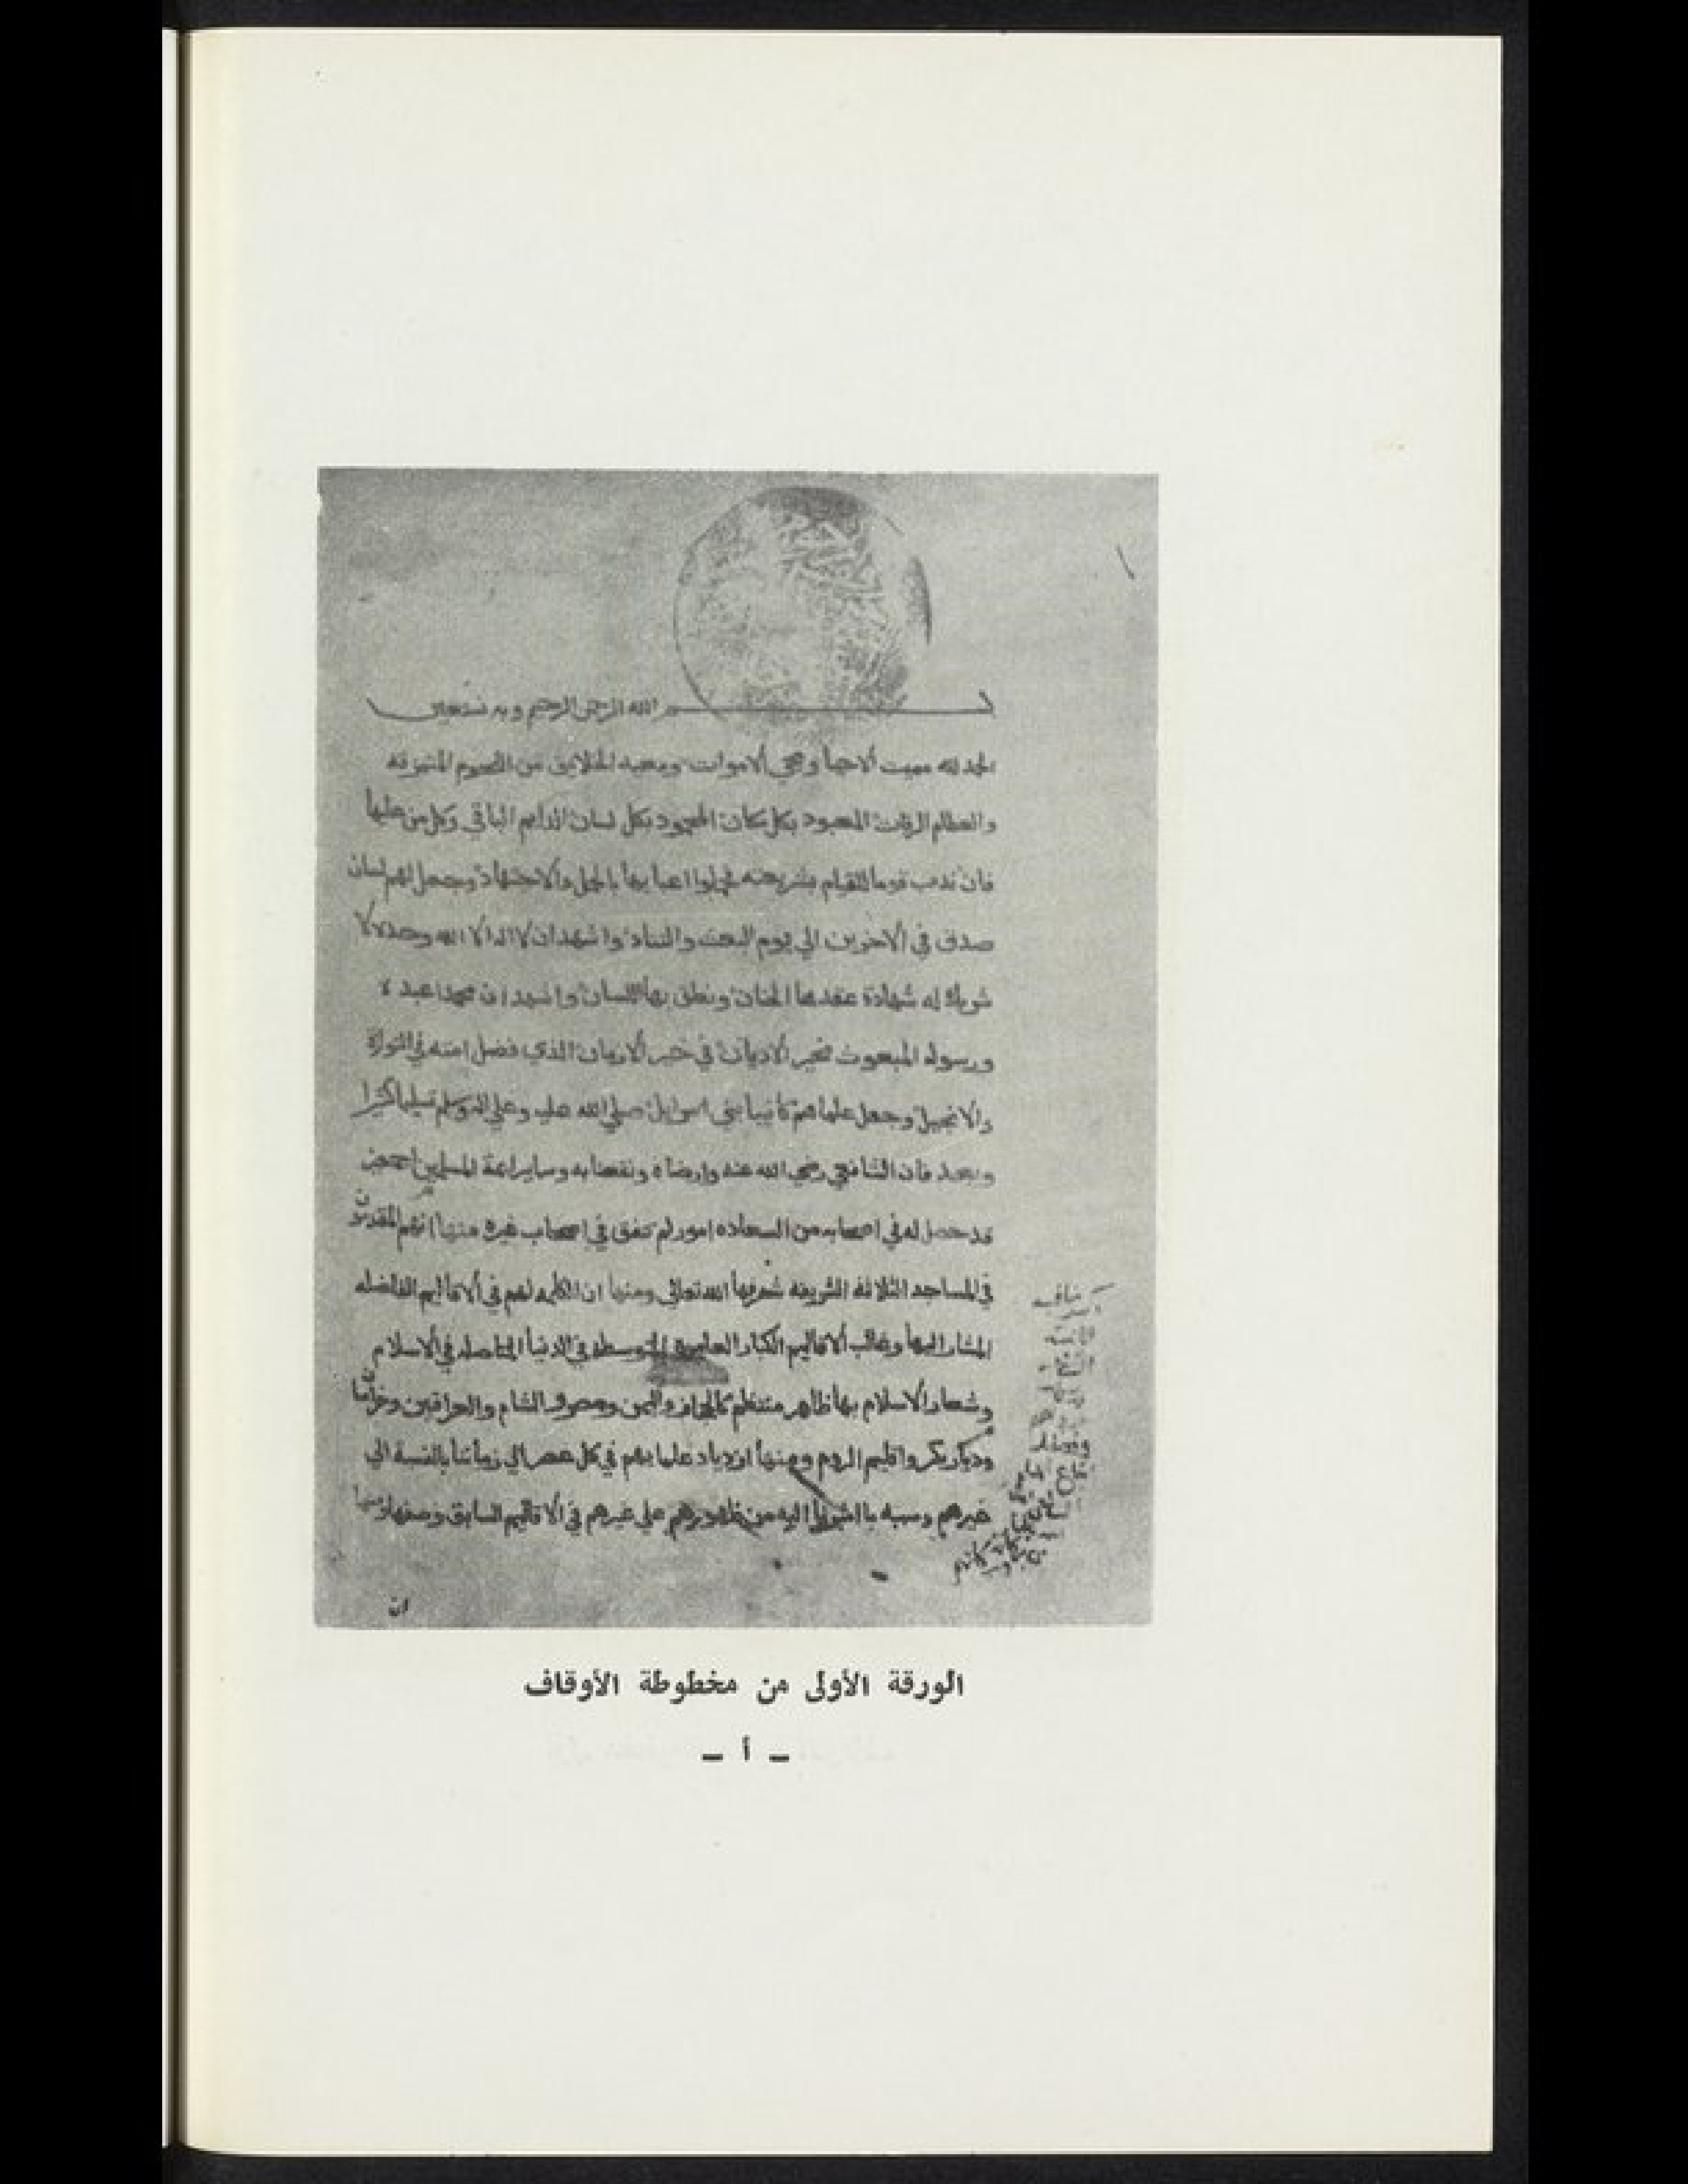 بسم الله الرحمن الرحيم وبه نستعين
الحمد لله مميت الاحيا ومحي الاموات ومعيد الخلايق من
والعظام الرفات المعبود بكل مكان المحمود بكل لسان الدايم الباقي وكل من عليها
فان ندب قوما للقيام بشريعته اعبا بها والاجتهاد وجعل لهم لسان
صدق في الاخرين الي يوم البعث والتناد واشهد ان لا اله الا الله وحده لا
شريك له شهادة عقدها الجنان ونطق بها اللسان واشهد ان محمدا عبده
ورسوله المبعوث بخير الاديان في خير الازمان الذي فضل امته في التوراة
والانجيل وجعل علماهم كانبيا بني اسرايل صلي الله عليه وعلي اله وسلم تسليما كثيرا
وبعد فان الشافعي رضي الله عنه وارضاه ونفعنا به وساير ايمة المسلمين اجمعين
قد حصل له في اصحابه من السعاده امور لم تتفق في اصحاب غيره منها انهم المقدمون
في المساجد الثلاثه الشريفه شرفها الله تعالي ومنها ان الكلمه لهم في الاقاليم الفاضله
المشار اليها وغالب الاقاليم الكبار العامرة المتوسطه في الدنيا المتاصله في الاسلام
وشعار الاسلام بها ظاهر منتظم كالحجاز واليمن ومصر والشام والعراقين وخراسان
وديار بكر واقليم الروم ومنها ازدياد علمايهم في كل عصر الي زماننا بالنسبة الي
غيرهم وسببه ما اشرنا اليه من ظهورهم علي غيرهم في الاقاليم السابق وصفها ومنها
ان
الورقة الأولى من مخطوطة الأوقاف
ـ أ ـ